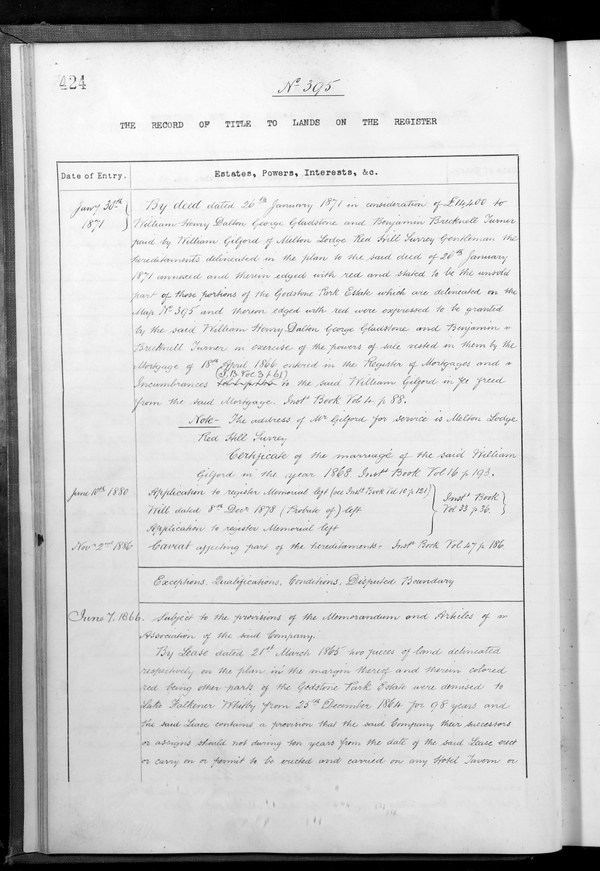 424
No. 395
THE RECORD OF TITLE TO LANDS ON THE REGISTER
Date of Entry.
Estates, Powers, Interests, &c.
Jany 30th 1871
By deed dated 26th January 1871 in consideration of £14,400 to
William Henry Dalton George Gladstone and Benjamin Brecknell Turner
paid by William Gilford of Melton Lodge Red Hill Surrey Gentleman the
hereditaments delineated in the plan to the said deed of 26th January
1871 annexed and therein edged with red and stated to be the unsold
part of those portions of the Godstone Park Estate which are delineated on the
Map No. 395 and thereon edged with red were expressed to be granted
by the said William Henry Dalton George Gladstone and Benjamin
Brecknell Turner in exercise of the powers of sale vested in them by the
Mortgage of 18th April 1866 entered in the Register of Mortgages and
(I.B. Vol 3 p 61)
Incumbrances to the said William Gilford in fee freed
from the said Mortgage. Inst Book Vol 4 p 88.
Note- The address of Mr Gilford for service is Melton Lodge
Red Hill Surrey
Certificate of the marriage of the said William
Gilford in the year 1868. Inst Book Vol 16 p 193.
June 10th 1880
Application to register Memorial left (see Inst Book Vol 10 p 121)
Will dated 8th Decr 1878 (Probate of) left
Application to register Memorial left
Inst Book
Vol 33 p 36.
Novr 2nd 1886
Caveat affecting part of the hereditaments - Inst Book Vol 47 p 186
Exceptions, Qualifications, Conditions, Disputed Boundary
June 7. 1866.
Subject to the provisions of the Memorandum and Articles of
Association of the said Company.
By Lease dated 21st March 1865 two pieces of land delineated
respectively on the plan in the margin thereof and therein colored
red being other parts of the Godstone Park Estate were demised to
Luke Falkener Whitby from 25th December 1864 for 98 years and
the said Lease contains a provision that the said Company their successors
or assigns should not during ten years from the date of the said Lease erect
or carry on or permit to be erected and carried on any Hotel Tavern or